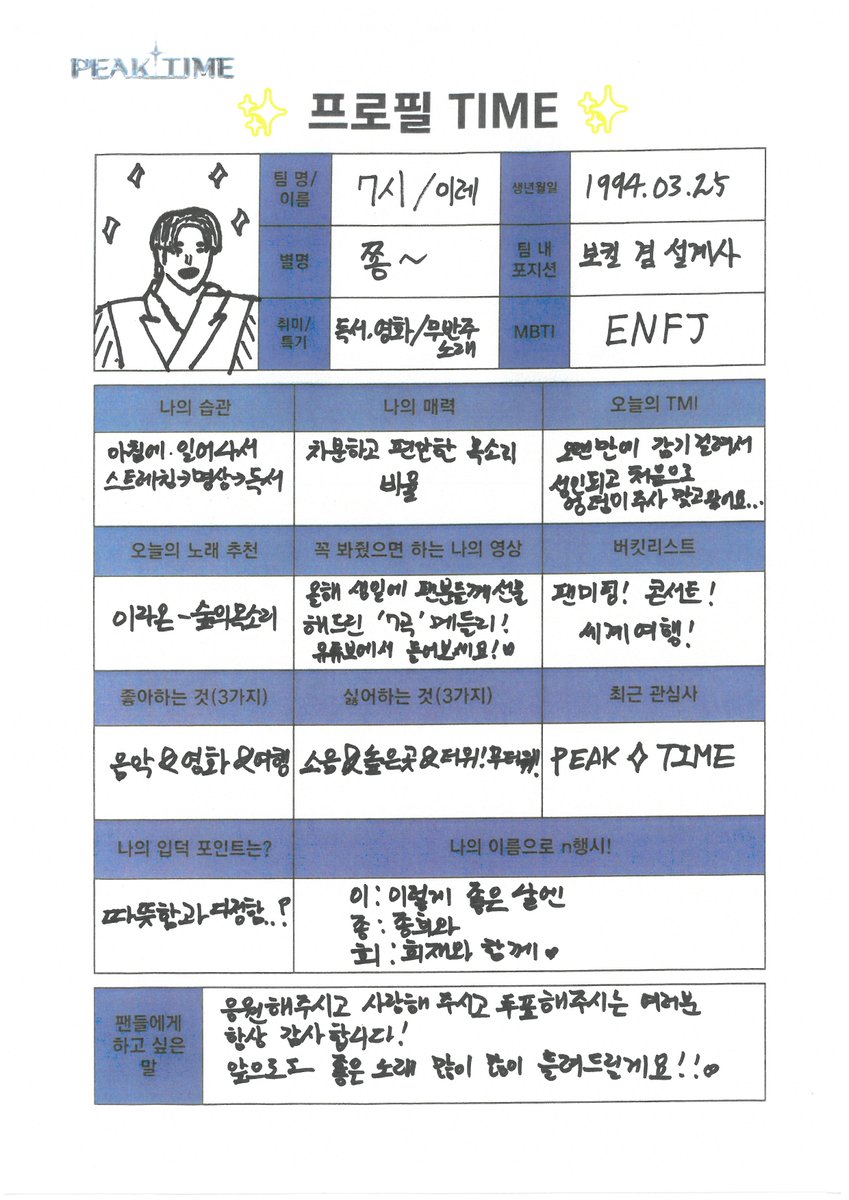 PEAK TIME
프로필 TIME
팀 명/
이름
7시/이레
생년월일
1994.03.25
별명
쫑~
팀 내
포지션
보컬 겸 설계사
취미/
특기
독서, 영화/무반주
노래
MBTI
ENFJ
나의 습관
나의 매력
오늘의 TMI
아침에 일어나서
스트레칭→명상→독서
차분하고 편안한 목소리
비율
오랜만에 감기걸려서
성인되고 처음으로
엉덩이주사 맞고왔어요...
오늘의 노래 추천
꼭 봐줬으면 하는 나의 영상
버킷리스트
이라온-숲의목소리
올해 생일에 팬분들께 선물
해드린 '7곡' 메들리!
유튜브에서 들어보세요!♡
팬미팅! 콘서트!
세계여행!
좋아하는 것(3가지)
싫어하는 것(3가지)
최근 관심사
음악&영화&여행
소음&높은곳&더위!무더위!
PEAK✧TIME
나의 입덕 포인트는?
나의 이름으로 n행시!
따뜻함과 다정함..?
이:이렇게 좋은 날엔
종:종희와
희:희재와 함께♥
팬들에게
하고 싶은
말
응원해주시고 사랑해 주시고 투표해주시는 여러분
항상 감사합니다!
앞으로도 좋은 노래 많이 많이 들려드릴게요!!♡